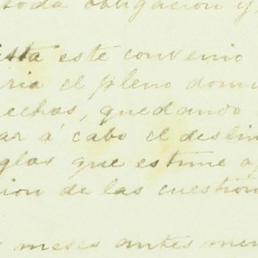 toda obligación y
este convenio
ria el pleno dom
echos, quedando
ar á cabo el deslin
glas que estime a
ion de las cuestion
meses antes men